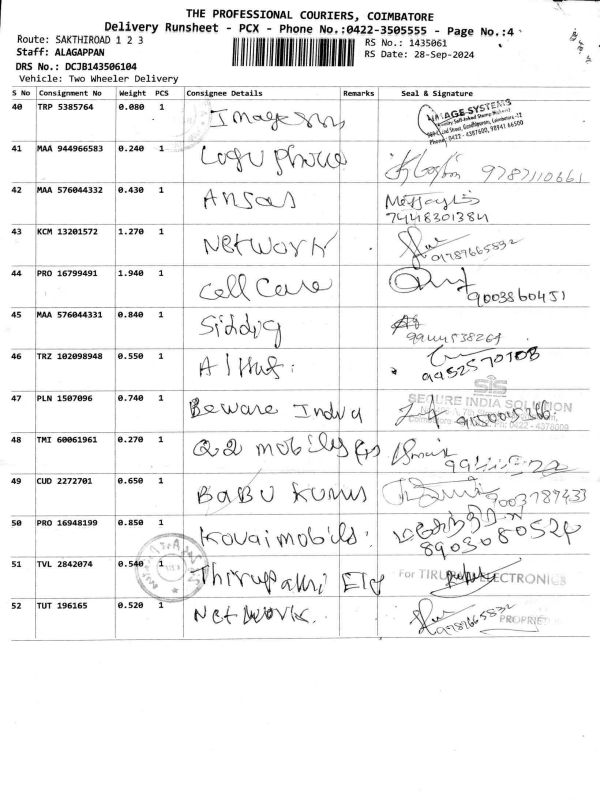 THE PROFESSIONAL COURIERS, COIMBATORE
Delivery Runsheet - PCX - Phone No.:0422-3505555 - Page No.:4
Route: SAKTHIROAD 1 2 3
RS No.: 1435061
Staff: ALAGAPPAN
RS Date: 28-Sep-2024
DRS No.: DCJB143506104
Vehicle: Two Wheeler Delivery
S No Consignment No Weight PCS Consignee Details Remarks Seal & Signature
40 TRP 5385764 0.080 1 IMAGE SYSTEMS
41 MAA 944966583 0.240 1 Logu phone 9787110661
42 MAA 576044332 0.430 1 Ansas
7448301384
43 KCM 13201572 1.270 1 Network
9789665832
44 PRO 16799491 1.940 1 Cell Care
9003860451
45 MAA 576044331 0.840 1 Siddiq
9944538264
46 TRZ 102098948 0.550 1
9952570108
47 PLN 1507096 0.740 1 Beware India SIS SECURE INDIA SOLUTION
48 TMI 60061961 0.270 1 mobily
49 CUD 2272701 0.650 1 BABU 9003789433
50 PRO 16948199 0.850 1 Kovai mobils
8903080524
51 TVL 2842074 0.540 1 Thirupathi For ELECTRONICS
52 TUT 196165 0.520 1 Network
9789665832